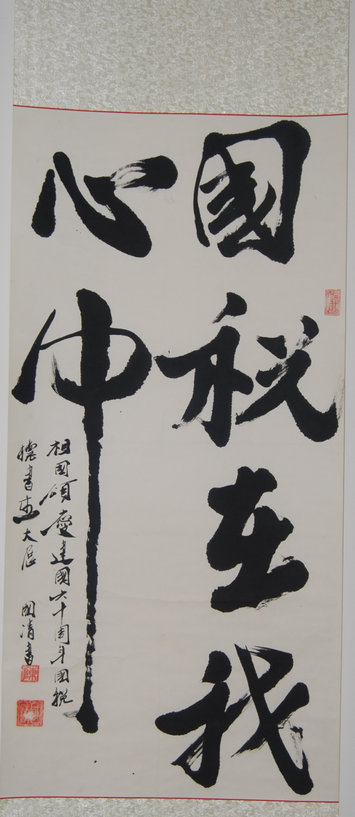 國税在我
心中
祖國頌慶建國六十周年國税
書畫大展 國清書